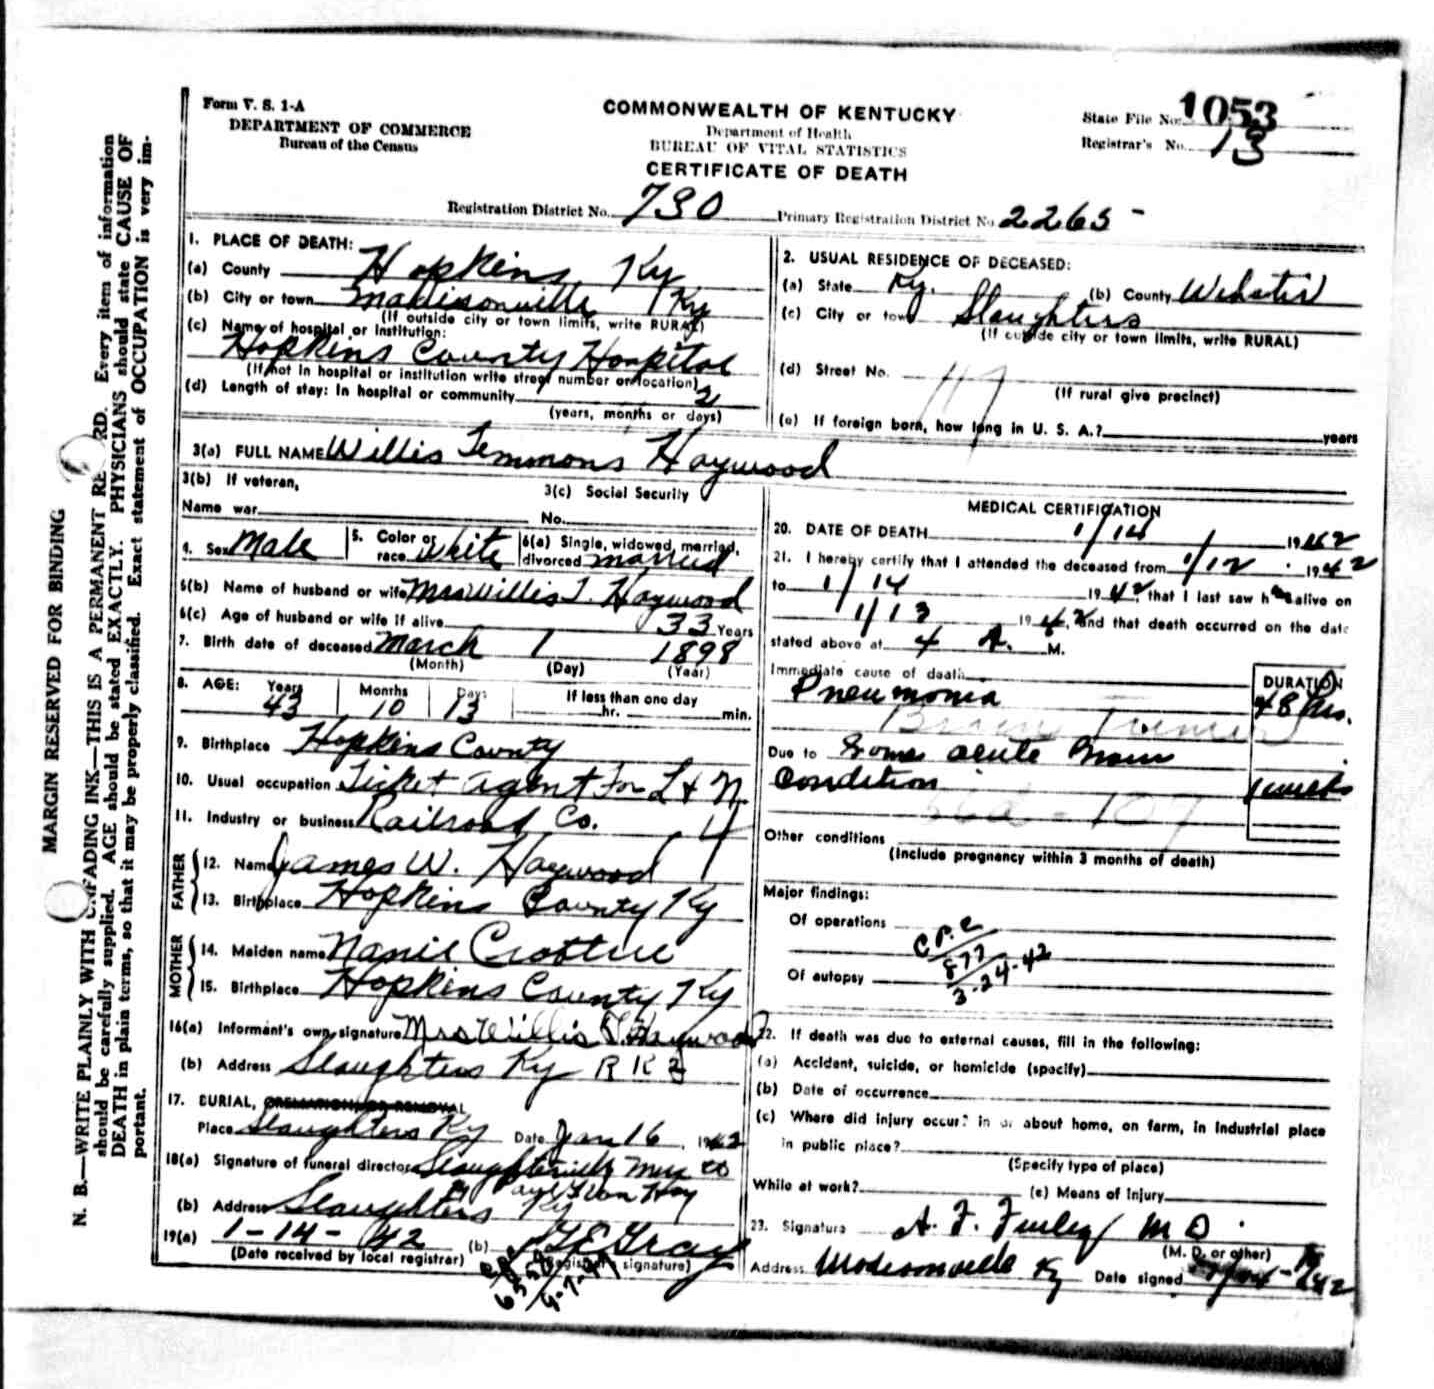 Form V. S. 1-A
DEPARTMENT OF COMMERCE
Bureau of the Census
COMMONWEALTH OF KENTUCKY
Department of Health
BUREAU OF VITAL STATISTICS
CERTIFICATE OF DEATH
State File No. 1053
Registrar's No. 13
Registration District No. 730 Primary Registration District No. 2265
MARGIN RESERVED FOR BINDING
N. B.—WRITE PLAINLY WITH UNFADING INK—THIS IS A PERMANENT RE RD. Every item of information
should be carefully supplied. AGE should be stated EXACTLY. PHYSICIANS should state CAUSE OF
DEATH in plain terms, so that it may be properly classified. Exact statement of OCCUPATION is very im-
portant.
1. PLACE OF DEATH:
(a) County Hopkins Ky
(b) City or town Madisonville Ky
(If outside city or town limits, write RURAL)
(c) Name of hospital or institution:
Hopkins County Hospital
(If not in hospital or institution write street number or location)
(d) Length of stay: In hospital or community 2
(years, months or days)
2. USUAL RESIDENCE OF DECEASED:
(a) State Ky. (b) County Webster
(c) City or town Slaughters
(If outside city or town limits, write RURAL)
(d) Street No.
(If rural give precinct)
(e) If foreign born, how long in U. S. A.? years
3(a) FULL NAME Willis Temmons Haywood
3(b) If veteran,
Name war
3(c) Social Security
No.
4. Sex Male 5. Color or race White 6(a) Single, widowed, married, divorced married
6(b) Name of husband or wife Mrs Willis T. Haywood
6(c) Age of husband or wife if alive 33 Years
7. Birth date of deceased March 1 1898
(Month) (Day) (Year)
8. AGE: Years 43 Months 10 Days 13 If less than one day
hr. min.
9. Birthplace Hopkins County
10. Usual occupation Ticket agent For L & N
11. Industry or business Railroad Co.
FATHER
12. Name James W. Haywood
13. Birthplace Hopkins County Ky
MOTHER
14. Maiden name Nanie Crabtree
15. Birthplace Hopkins County Ky
16(a) Informant's own signature Mrs Willis T. Haywood
(b) Address Slaughters Ky R R 2
17. BURIAL, CREMATION OR REMOVAL
Place Slaughters Ky Date Jan 16, 1942
18(a) Signature of funeral director
(b) Address Slaughters Ky
19(a) 1-14-42 (b) Gray
(Date received by local registrar) (Registrar's signature)
MEDICAL CERTIFICATION
20. DATE OF DEATH 1/14 1942
21. I hereby certify that I attended the deceased from 1/12 1942
to 1/14 1942, that I last saw h alive on
1/13 1942, and that death occurred on the date
stated above at 4 A. M.
Immediate cause of death
DURATION
Pneumonia 48 hrs.
Brain Tumor
Due to Some acute Brain
condition weeks
Other conditions
(Include pregnancy within 3 months of death)
Major findings:
Of operations
Of autopsy
877
3-24-42
22. If death was due to external causes, fill in the following:
(a) Accident, suicide, or homicide (specify)
(b) Date of occurrence
(c) Where did injury occur? in or about home, on farm, in industrial place
in public place?
(Specify type of place)
While at work? (e) Means of Injury
23. Signature A. F. Finley M D.
(M. D. or other)
Address Madisonville Ky Date signed